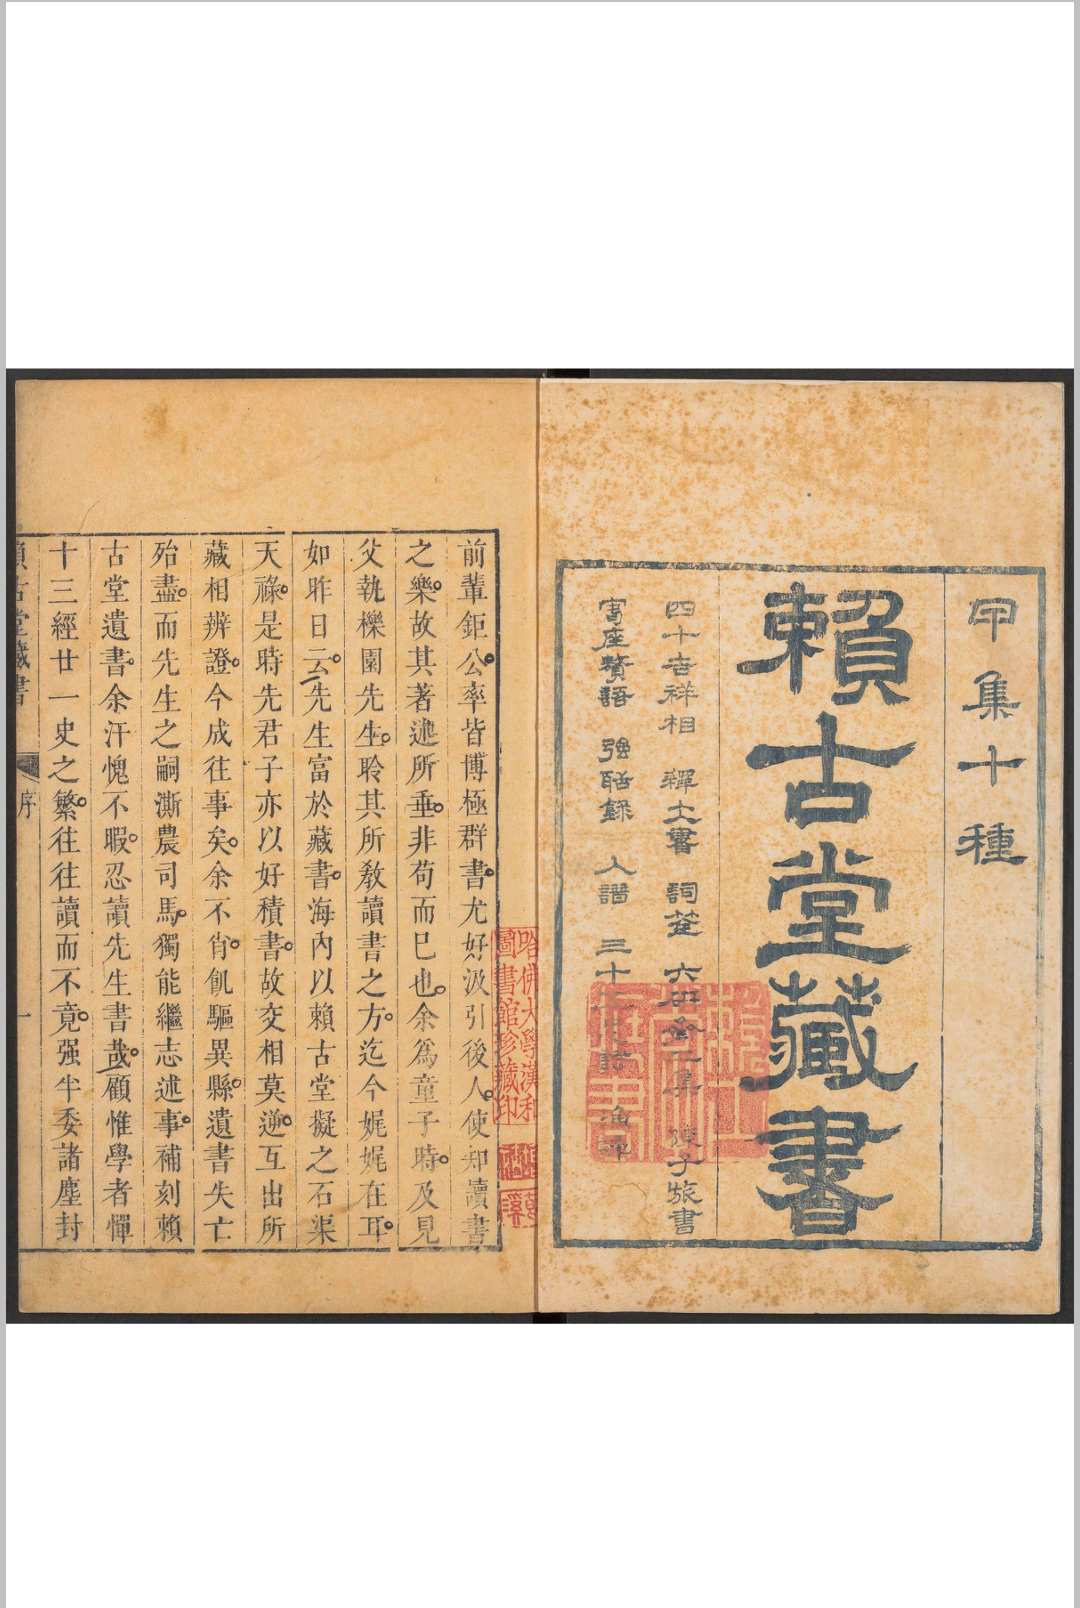 甲集十種
賴古堂藏書
四十吉祥相 釋大書 詞 六 集 陳子旅書
寄座贅語 強聒錄 人譜 三十
前輩鉅公率皆博極群書尤好汲引後人使知讀書
之樂故其著述所垂非苟而已也余為童子時及見
父執櫟園先生聆其所敎讀書之方迄今娓娓在耳
如昨日云先生富於藏書海內以賴古堂擬之石渠
天祿是時先君子亦以好積書故交相莫逆互出所
藏相辨證今成往事矣余不肖飢驅異縣遺書失亡
殆盡而先生之嗣漸農司馬獨能繼志述事補刻賴
古堂遺書余汗愧不暇忍讀先生書哉顧惟學者憚
十三經廿一史之繁往往讀而不竟强半委諸塵封
賴古堂藏書 序 一
哈佛大學漢和
圖書館珍藏印